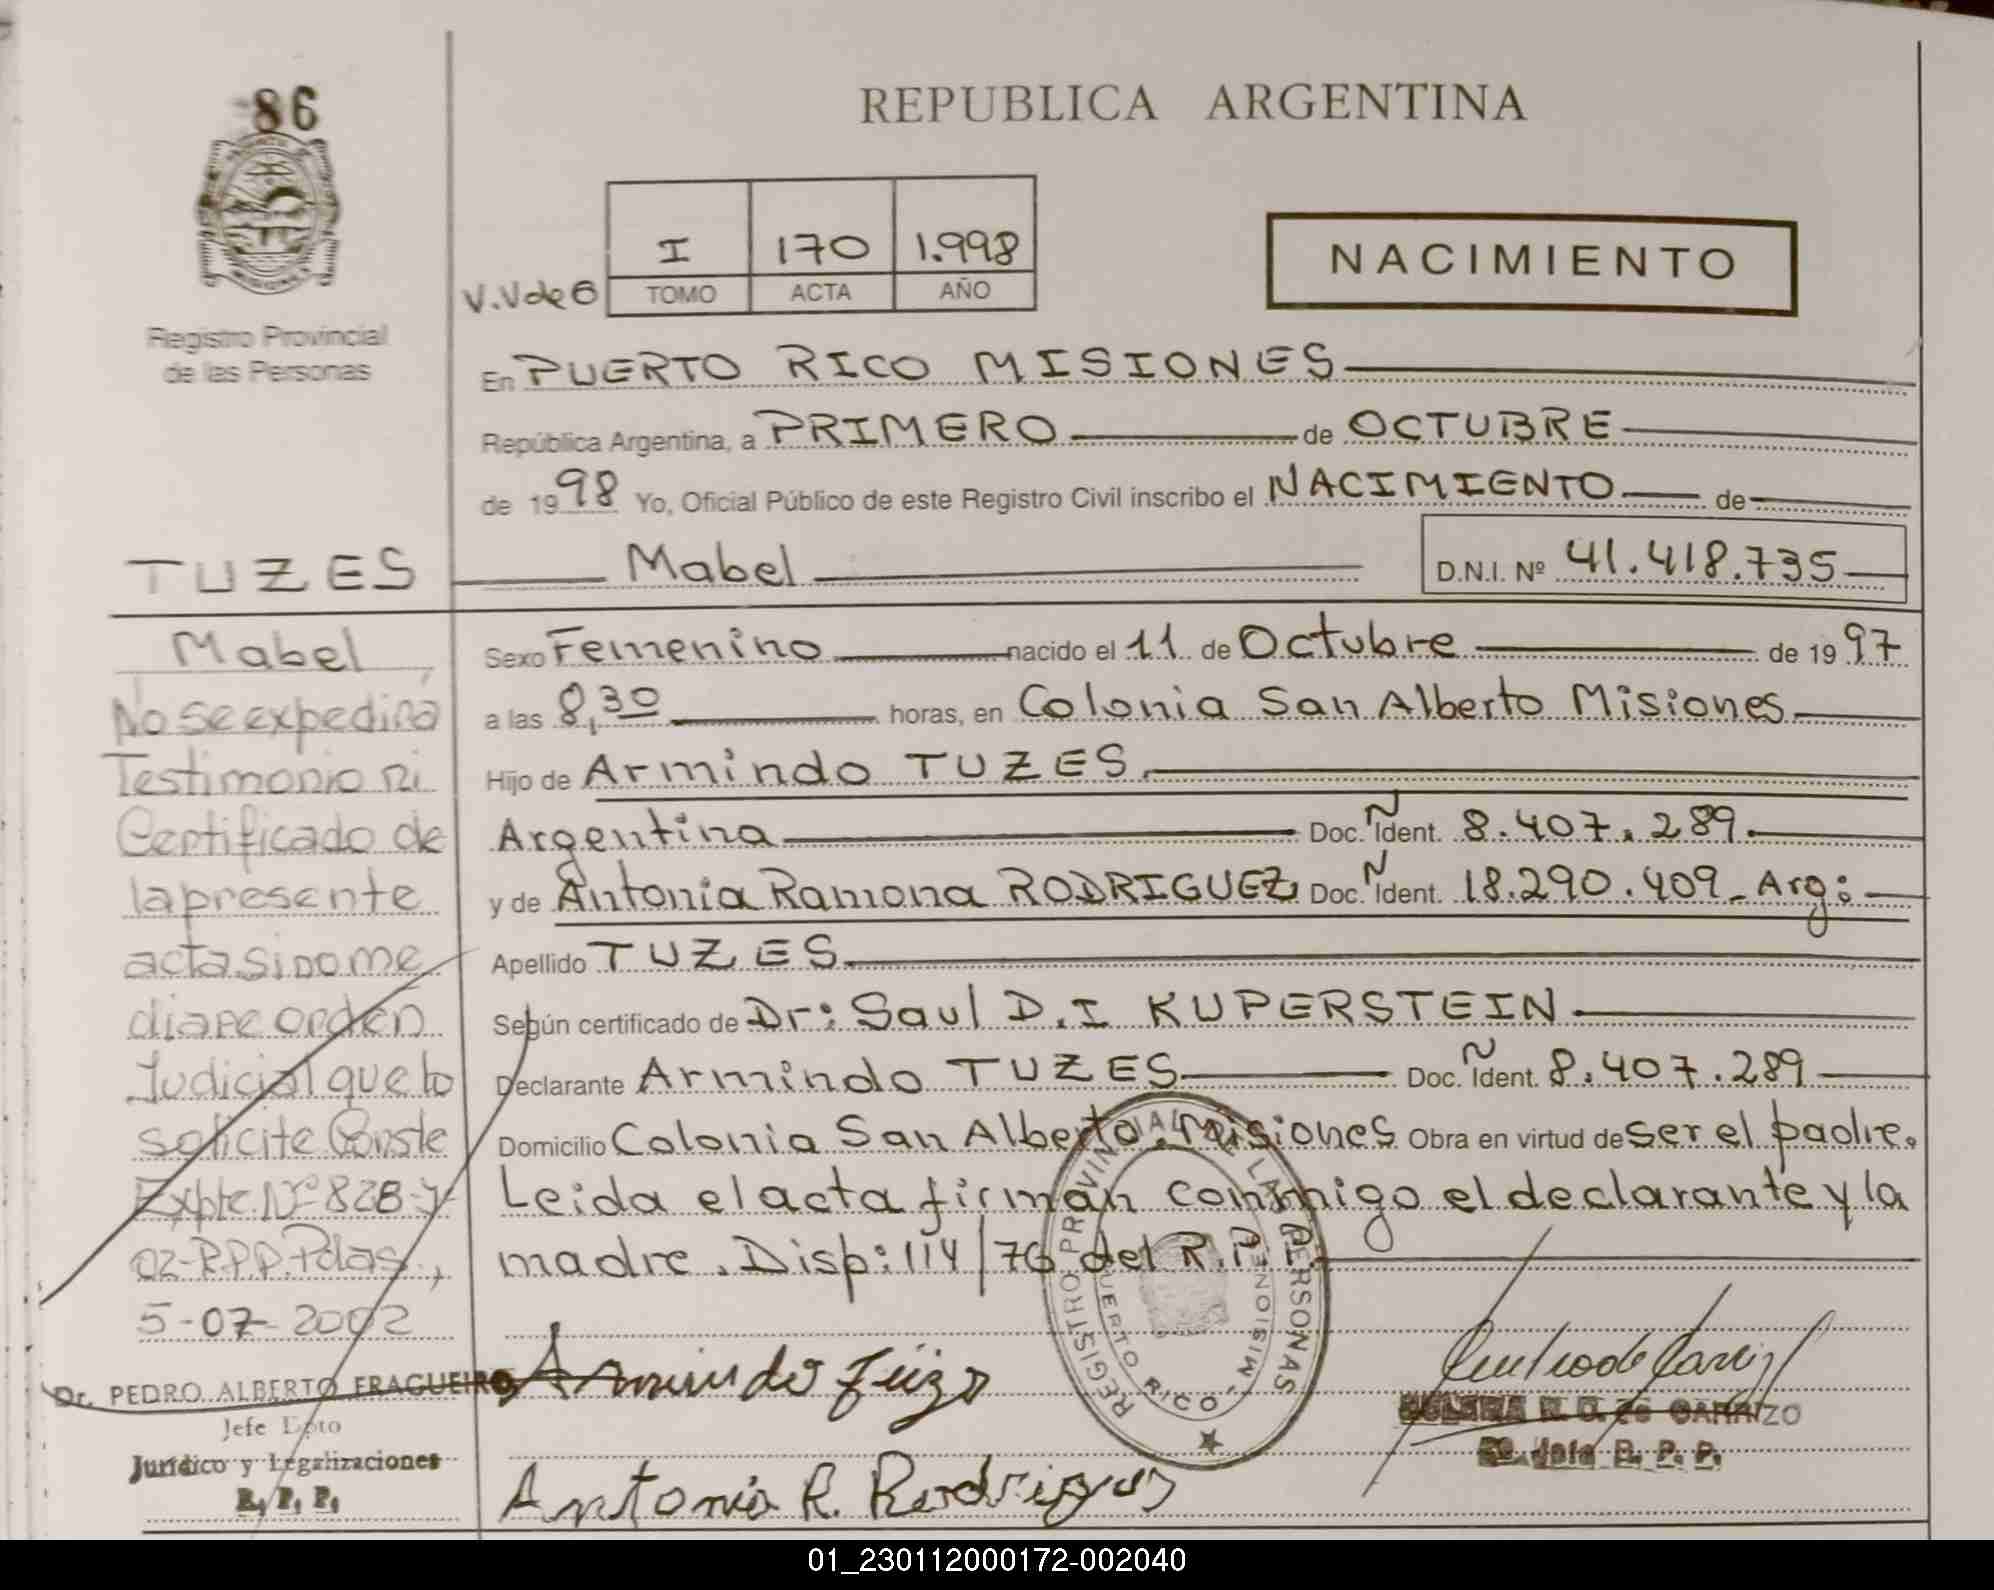 86
Registro Provincial
de las Personas
REPUBLICA ARGENTINA
V.V de 6
I 170 1.998
TOMO ACTA AÑO
NACIMIENTO
En PUERTO RICO MISIONES
República Argentina, a PRIMERO de OCTUBRE
de 1998 Yo, Oficial Público de este Registro Civil inscribo el NACIMIENTO de
Mabel D.N.I. Nº 41.418.735
Sexo Femenino nacido el 11 de Octubre de 1997
a las 8,30 horas, en Colonia San Alberto Misiones
Hijo de Armindo TUZES
Argentina Doc. Ñ Ident. 8.407.289.
y de Antonia Ramona RODRIGUEZ Doc. Ñ Ident. 18.290.409 - Arg:
Apellido TUZES
Según certificado de Dr: Saul D.I KUPERSTEIN
Declarante Armindo TUZES Doc. Ñ Ident. 8.407.289
Domicilio Colonia San Alberto. Misiones Obra en virtud de ser el padre.
Leida el acta firman conmigo el declarante y la
madre. Disp: 114/76 del R.P.P.
TUZES
Mabel
No se expedirá
Testimonio ni
Certificado de
la presente
acta si no me
diare orden
Judicial que lo
solicite Conste
Expte Nº 828-y-
02-R.P.P. Pdas.,
5-07-2002
Dr. PEDRO ALBERTO FRAGUEIRO
Jefe Dpto
Jurídico y Legalizaciones
R. P. P.
Armindo
Antonia R. Rodriguez
REGISTRO PROVINCIAL DE LAS PERSONAS
PUERTO RICO - MISIONES
CARRIZO
R. P. P.
01_230112000172-002040